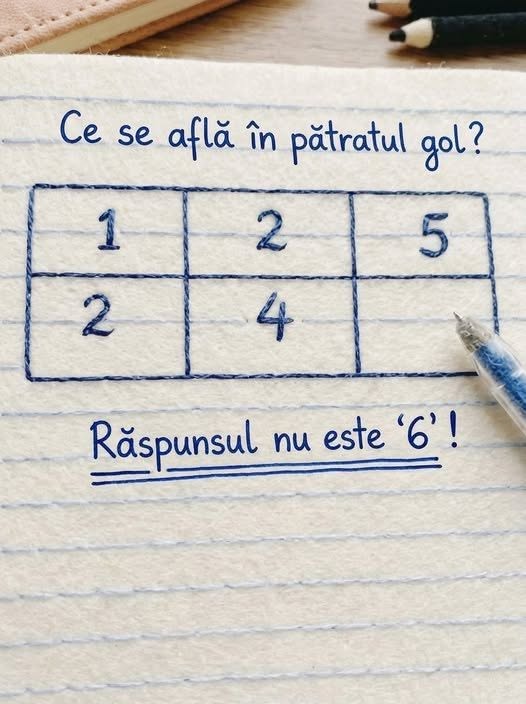 Ce se află în pătratul gol?
1 2 5
2 4
Răspunsul nu este ‘6’!